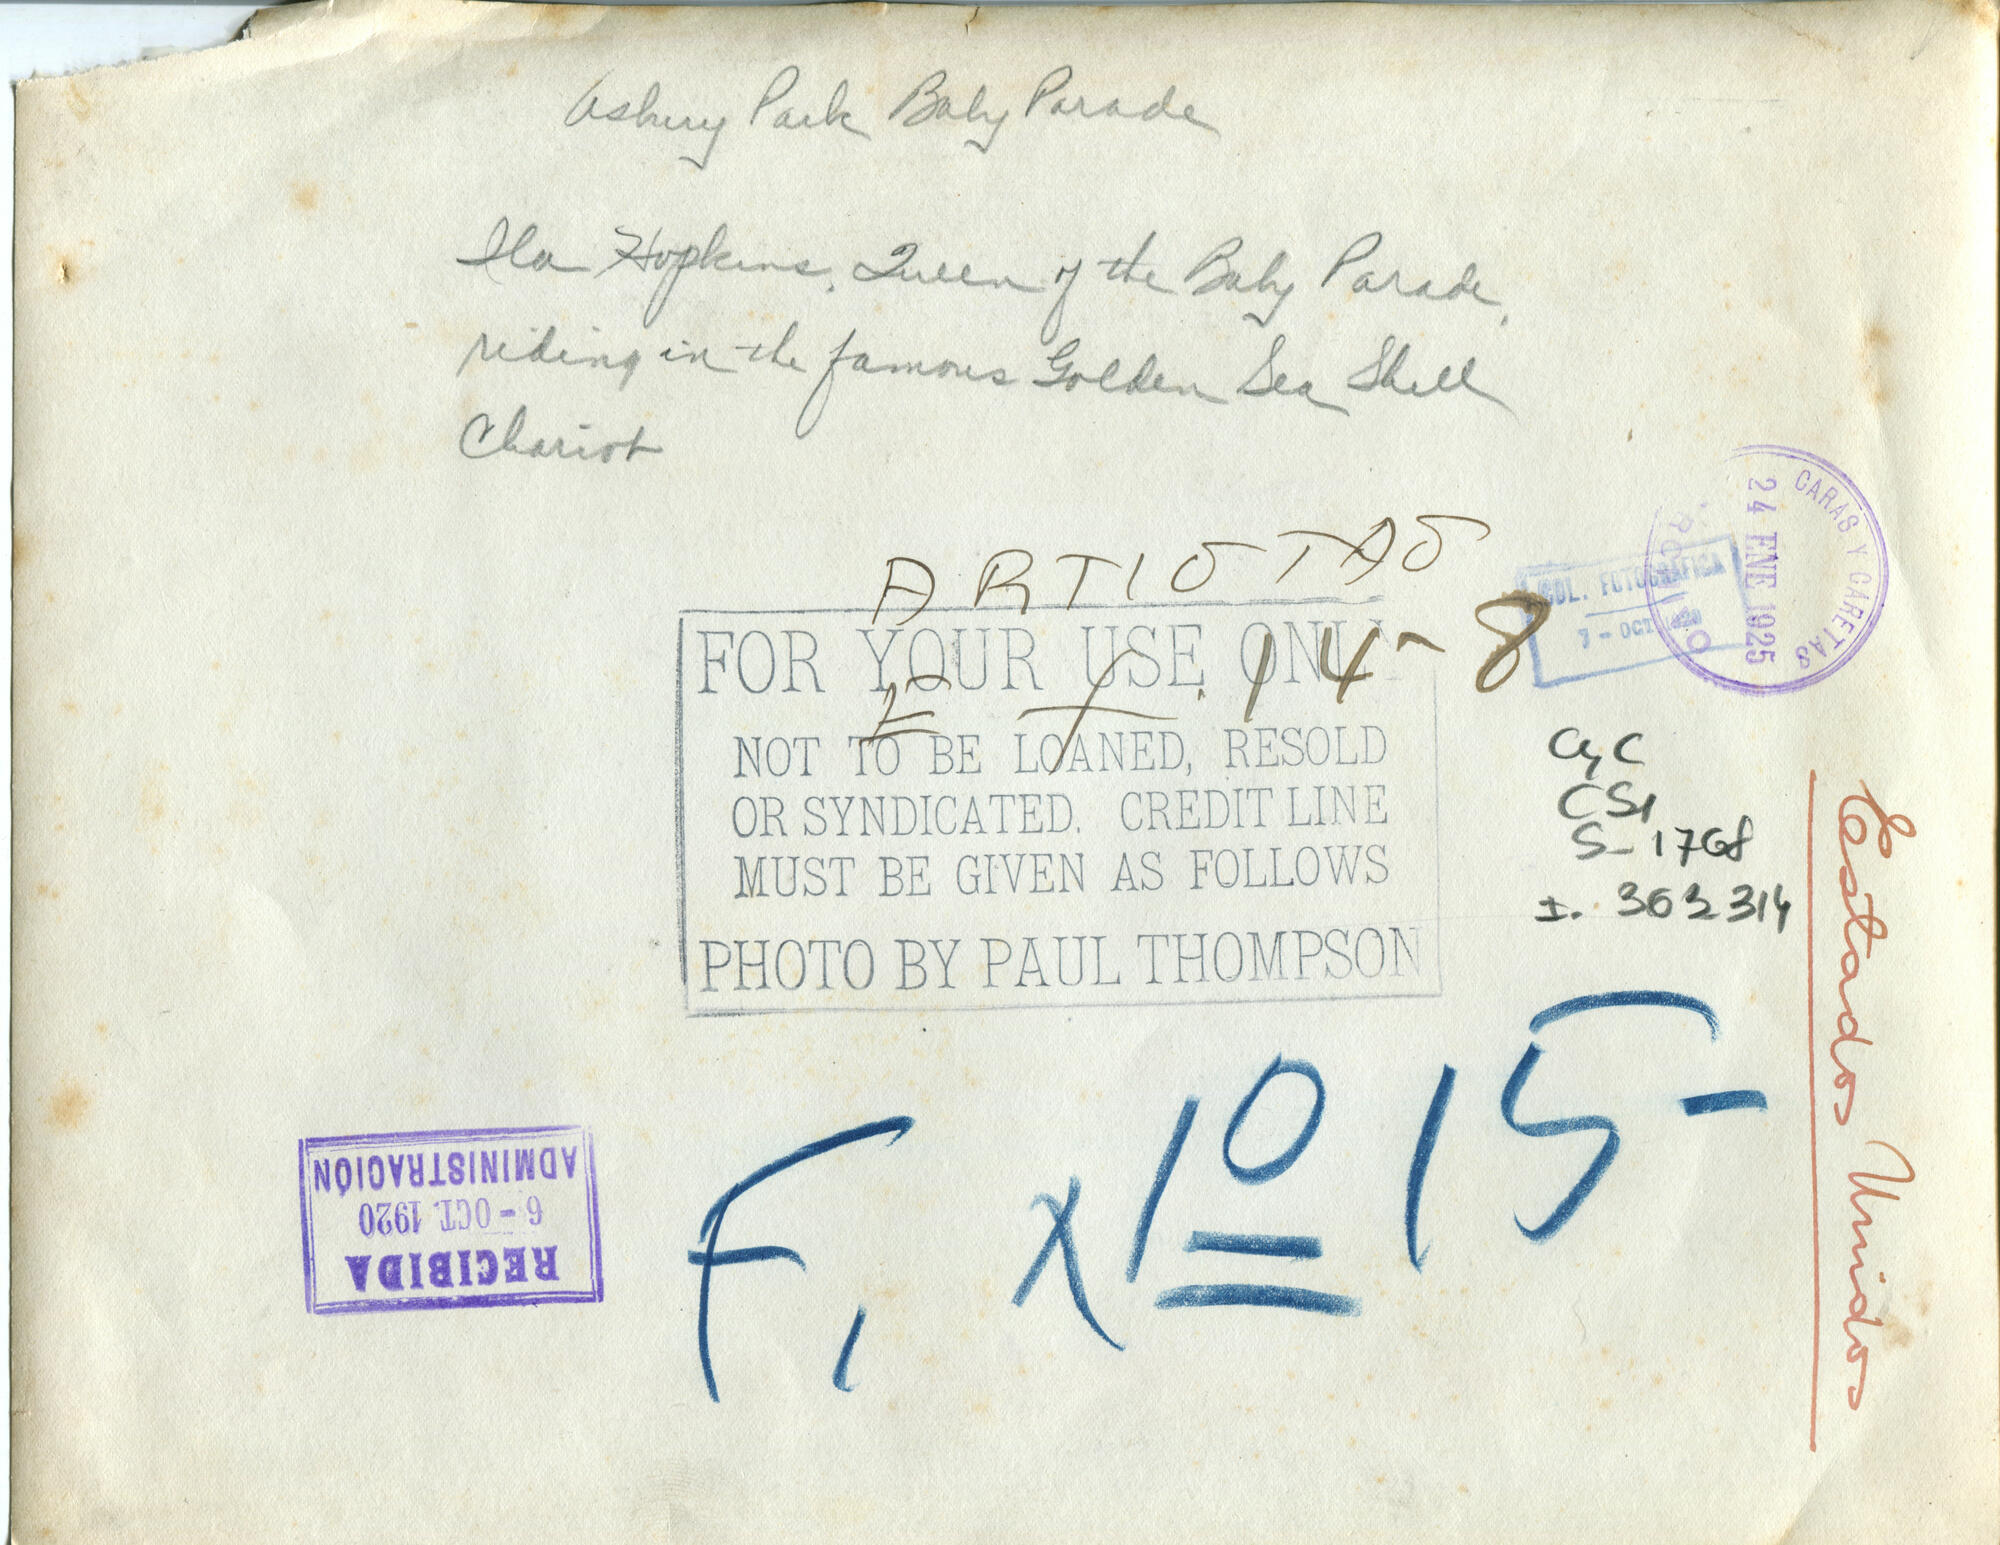 Asbury Park Baby Parade
Ila Hopkins, Queen of the Baby Parade,
riding in the famous Golden Sea Shell
Chariot
ARTISTAS
E 14-8
FOR YOUR USE ONLY
NOT TO BE LOANED, RESOLD
OR SYNDICATED. CREDIT LINE
MUST BE GIVEN AS FOLLOWS
PHOTO BY PAUL THOMPSON
CARAS Y CARETAS
24 ENE 1925
COL. FOTOGRAFICA
7 - OCT 1920
CyC
CS1
S-1768
I. 363314
Estados Unidos
F, x 10 15-
RECIBIDA
6 - OCT. 1920
ADMINISTRACIÓN